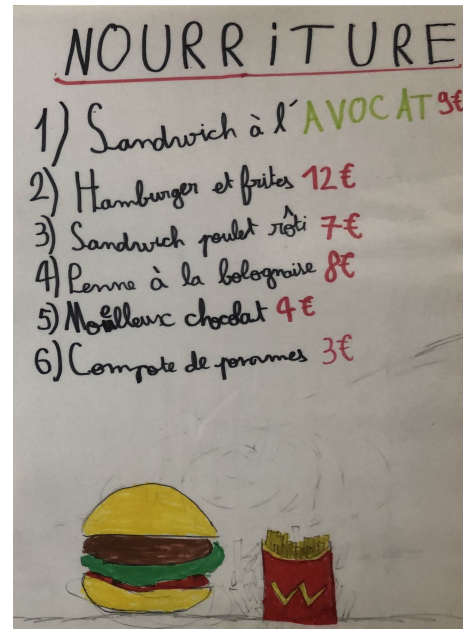 NOURRiTURE
1) Sandwich à l'AVOCAT 9€
2) Hamburger et frites 12€
3) Sandwich poulet rôti 7€
4) Penne à la bolognaise 8€
5) Moelleux chocolat 4€
6) Compote de pommes 3€
W